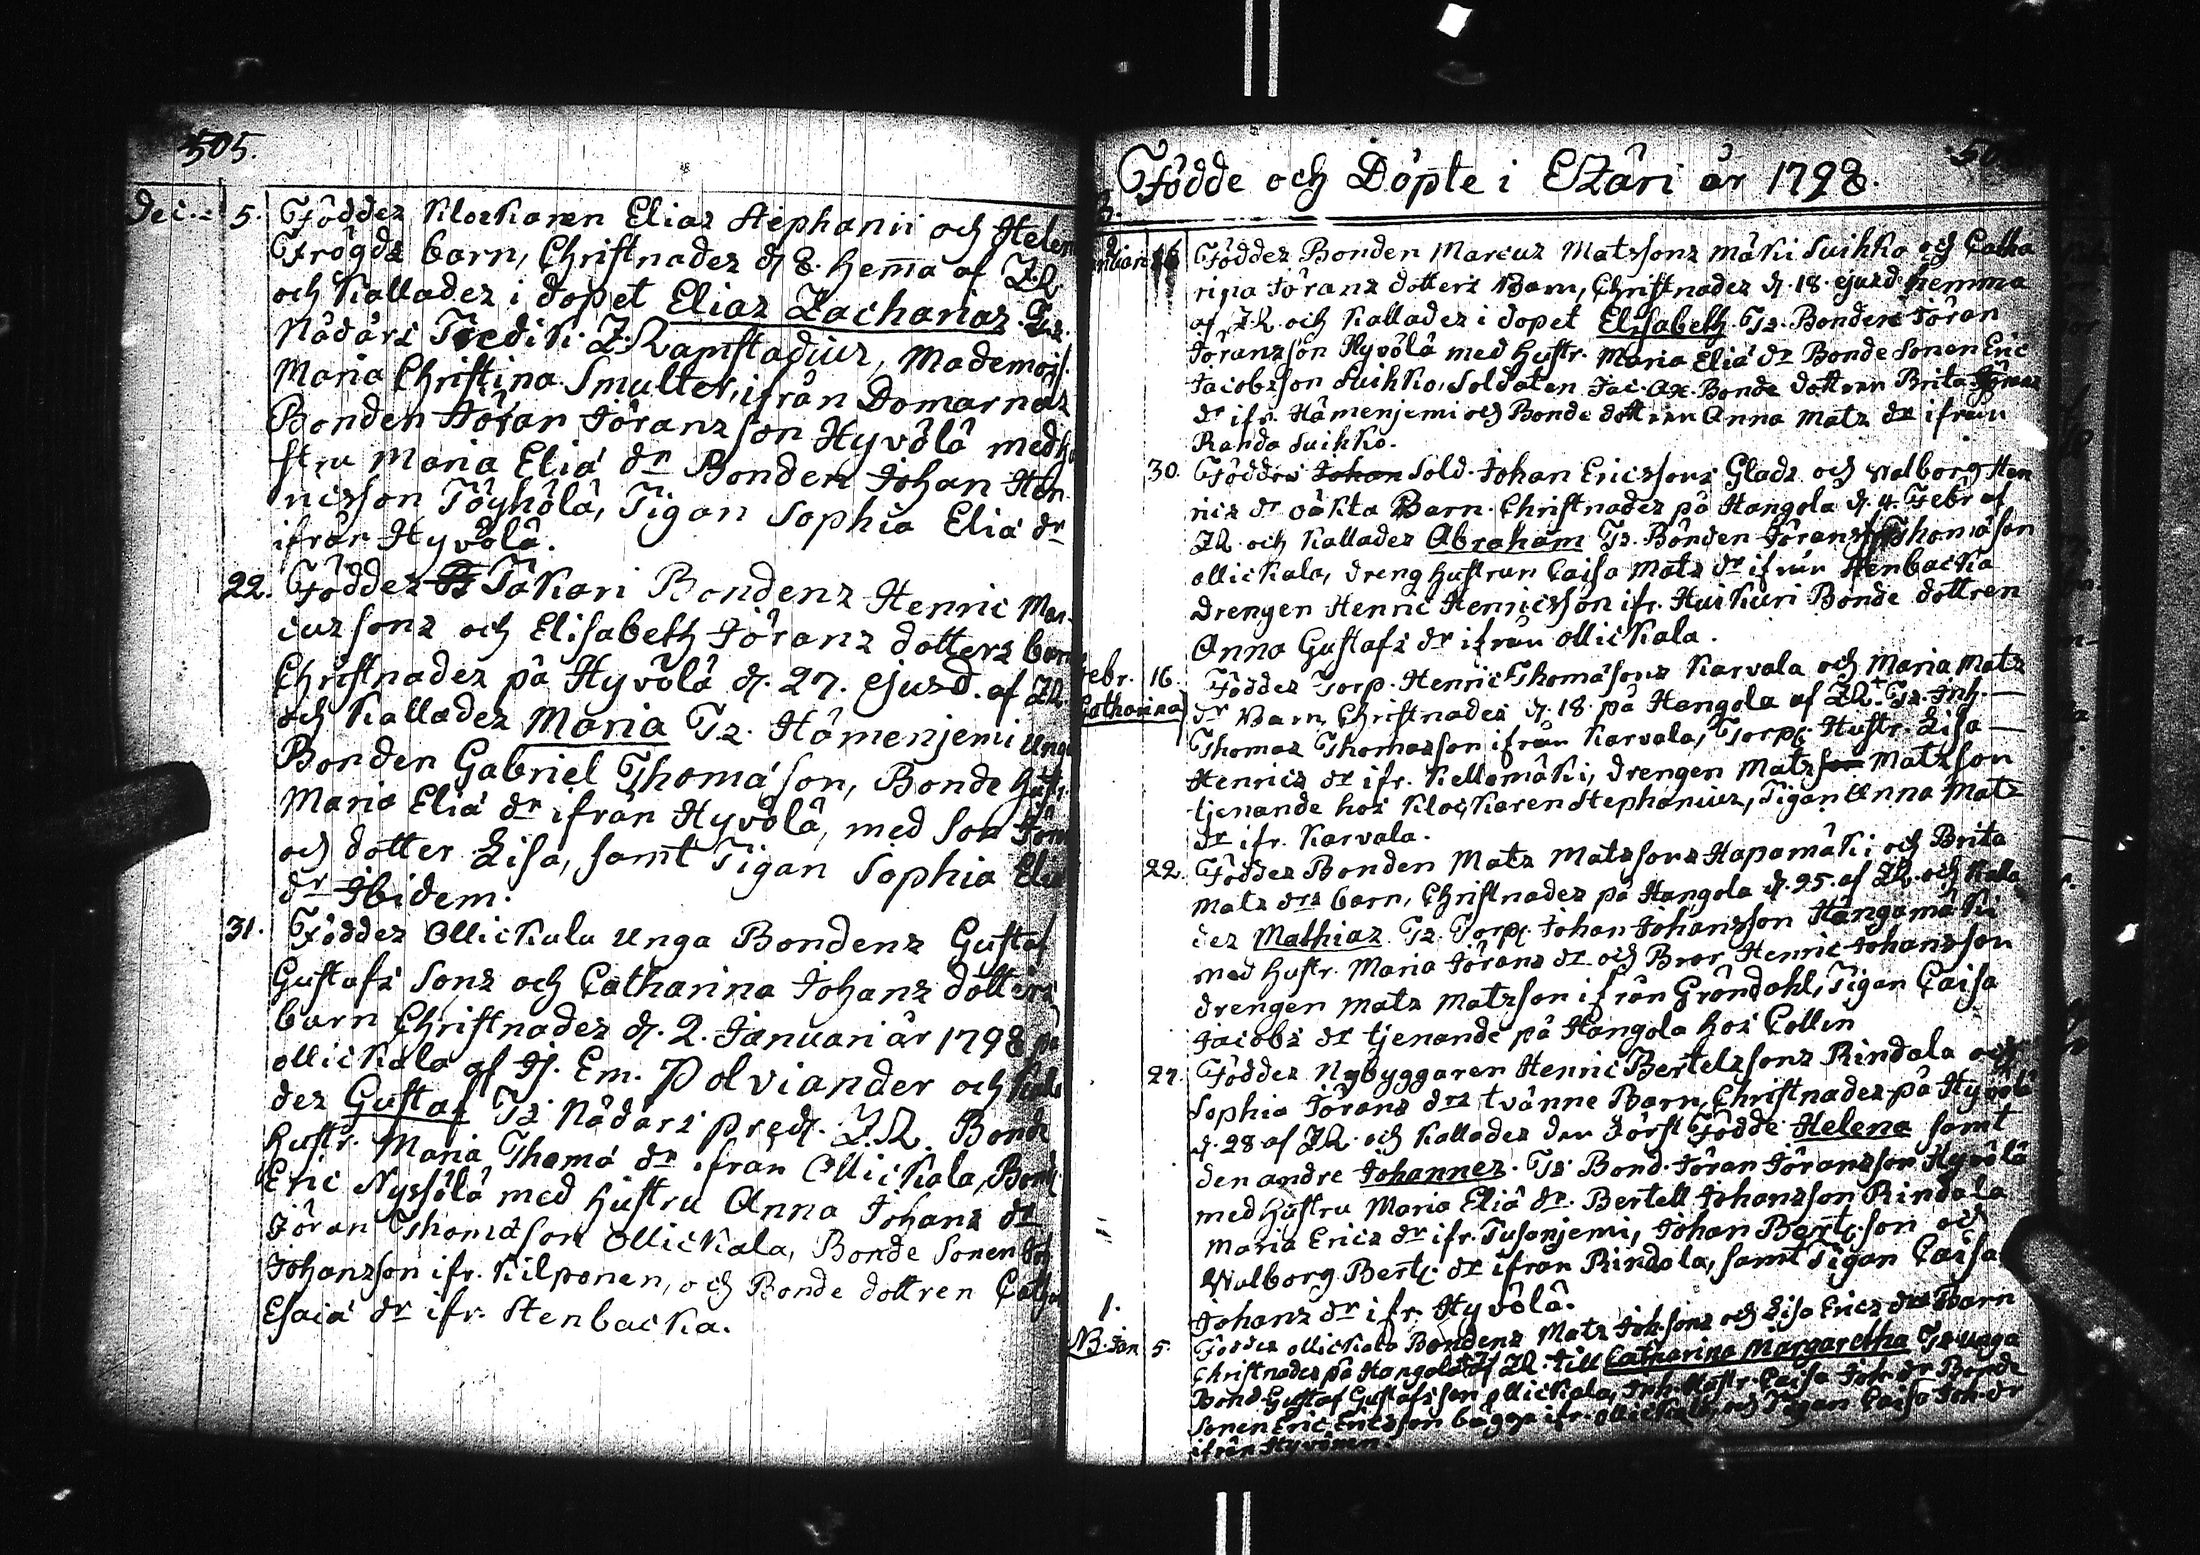 505.
Dec. 5. Föddes Klockaren Elias Stephanii och Helen
Frögds barn, Christnades d. 8. hem̄a af Z.R
och Kallades i dopet Elias Zacharias. Ts.
Nådårs Predik. Z. Ramstadius, Mademois.
Maria Christina Smulter, ifrån Domarnäs
Bonden Jöran Jöransson Hyvölä med hu
stru Maria Eliæ dr Bonden Johan Hen
ricsson Töyhölä, Pigan Sophia Eliæ dr
ifrån Hyvölä.
22. Föddes Täkäri Bondens Henric Mar-
cussons och Elisabeth Jörans dotters barn
Christnades på Hyvölä d. 27. ejusd. af Z.R.
och Kallades Maria Ts. Hämenjemi unga
Bonden Gabriel Thomæson, Bonde hustr.
Maria Eliæ dr ifrån Hyvölä, med son Jöran
och dotter Lisa, samt Pigan Sophia Eliæ
dr Ibidem.
31. Föddes Ollickala Unga Bondens Gustaf
Gustafs Sons och Catharina Johans dotters
barn Christnades d. 2. Januari år 1798 på
Ollickala af Hj. Em. Polviander och Kalla
des Gustaf Ts. Nådårs pred. Z.R. Bonde
hustr. Maria Thomæ dr ifrån Ollickala, Bond
Eric Nyssölä med hustru Anna Johans dr
Jöran Thomæson Ollickala, Bonde Sonen
Johansson ifr. Kilponen, och Bonde dottren Cath
Esaiæ dr ifr. Stenbacka.
Födde och Döpte i Etzäri år 1798.
16 Föddes Bonden Marcus Matssons Mäki Suihko och Catha
rina Jörans dotters Barn, Christnades d. 18. ejusd hemma
af Z.R. och Kallades i dopet Elisabeth. Ts. Bonden Jöran
Jöransson Hyvölä med hustr. Maria Eliæ dr Bonde Sonen Eric
Jacobsson Suihko, Soldaten Jac. Ax. Bonde dottren Brita Jörans
dr ifr. Hämenjemi och Bonde dottren Anna Mats dr ifrån
Randa Suihko.
30. Föddes Johan Sold. Johan Ericssons Glads och Walborg Hen
rics dr oäkta Barn. Christnades på Hangola d. 4. Febr af
Z.R. och Kallades Abraham Ts. Bonden Jöran Thomæson
Ollickala, dreng hustrun Caisa Mats dr ifrån Stenbacka
drengen Henric Henricsson ifr. Huskuri Bonde dottren
Anna Gustafs dr ifrån Ollickala.
Febr. 16. Föddes Torp. Henric Thomæsons Karvala och Maria Mats
Catharina dr Barn, Christnades d. 18. på Hangola af Z.R. Ts. Inh.
Thomas Thomasson ifrån Karvala, Torp. Hustr. Lisa
Henrics dr ifr. Kellomäki, drengen Mats son Matsson
tjenande hos Klockaren Stephanius, Pigan Anna Mats
dr ifr. Karvala.
22. Föddes Bonden Mats Matssons Hapamäki och Brita
Mats drs barn, Christnades på Hangola d. 25. af Z.R. och Kalla
des Mathias Ts. Torp. Johan Johansson Hangamäki
med hustr. Maria Jörans dr och Bror Henric Johansson
drengen Mats Matsson ifrån Gröndahl, Pigan Caisa
Jacobs dr tjenande på Hangola hos Collin
27. Föddes Nybyggaren Henric Bertelssons Rindala och
Sophia Jörans drs tvänne Barn, Christnades på Hyvölä
d. 28 af Z.R. och Kallades den först Födde Helena samt
den andre Johannes. Ts. Bond. Jöran Jöransson Hyvölä
med hustru Maria Eliæ dr. Bertell Johansson Rindala
Maria Erics dr ifr. Tusanjemi, Johan Bert. son och
Walborg Bert. dr ifrån Rindala, samt Pigan Caisa
Johans dr ifr. Hyvölä.
1.
NB. Jan 5. Föddes Ollickala Bondens Mats Joh. sons och Lisa Erics drs Barn
Christnades på Hangola af Z.R. till Catharina Margaretha Ts. unga
Bond. Gustaf Gustafsson Ollickala, Inh. Hustr. Caisa Joh. dr Bonde
Sonen Eric Ericsson bägge ifr. Ollickala och Pigan Caisa Joh. dr
ifrån Hyvönen.